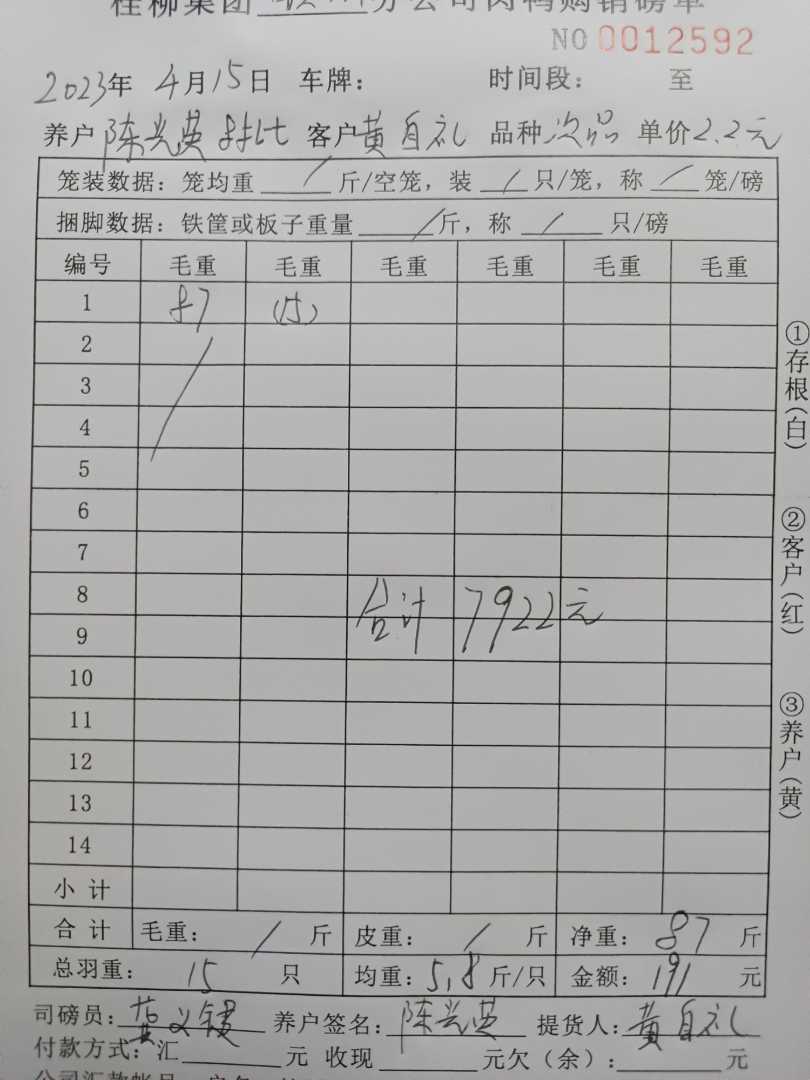 桂柳集团 分公司肉鸭购销磅单
NO 0012592
2023年 4月15日 车牌： 时间段： 至
养户 陈光英 客户 黄自礼 品种 次品 单价 2.2元
笼装数据：笼均重 / 斤/空笼，装 / 只/笼，称 / 笼/磅
捆脚数据：铁筐或板子重量 / 斤，称 / 只/磅
编号 毛重 毛重 毛重 毛重 毛重 毛重
1 87 (15)
2
3
4
5
6
7
8
合计 7922元
9
10
11
12
13
14
小计
合计 毛重： / 斤 皮重： / 斤 净重：87 斤
总羽重：15 只 均重：5.8 斤/只 金额：191 元
司磅员：黄义 养户签名：陈光英 提货人：黄自礼
付款方式：汇 元 收现 元欠（余）： 元
①存根（白）
②客户（红）
③养户（黄）